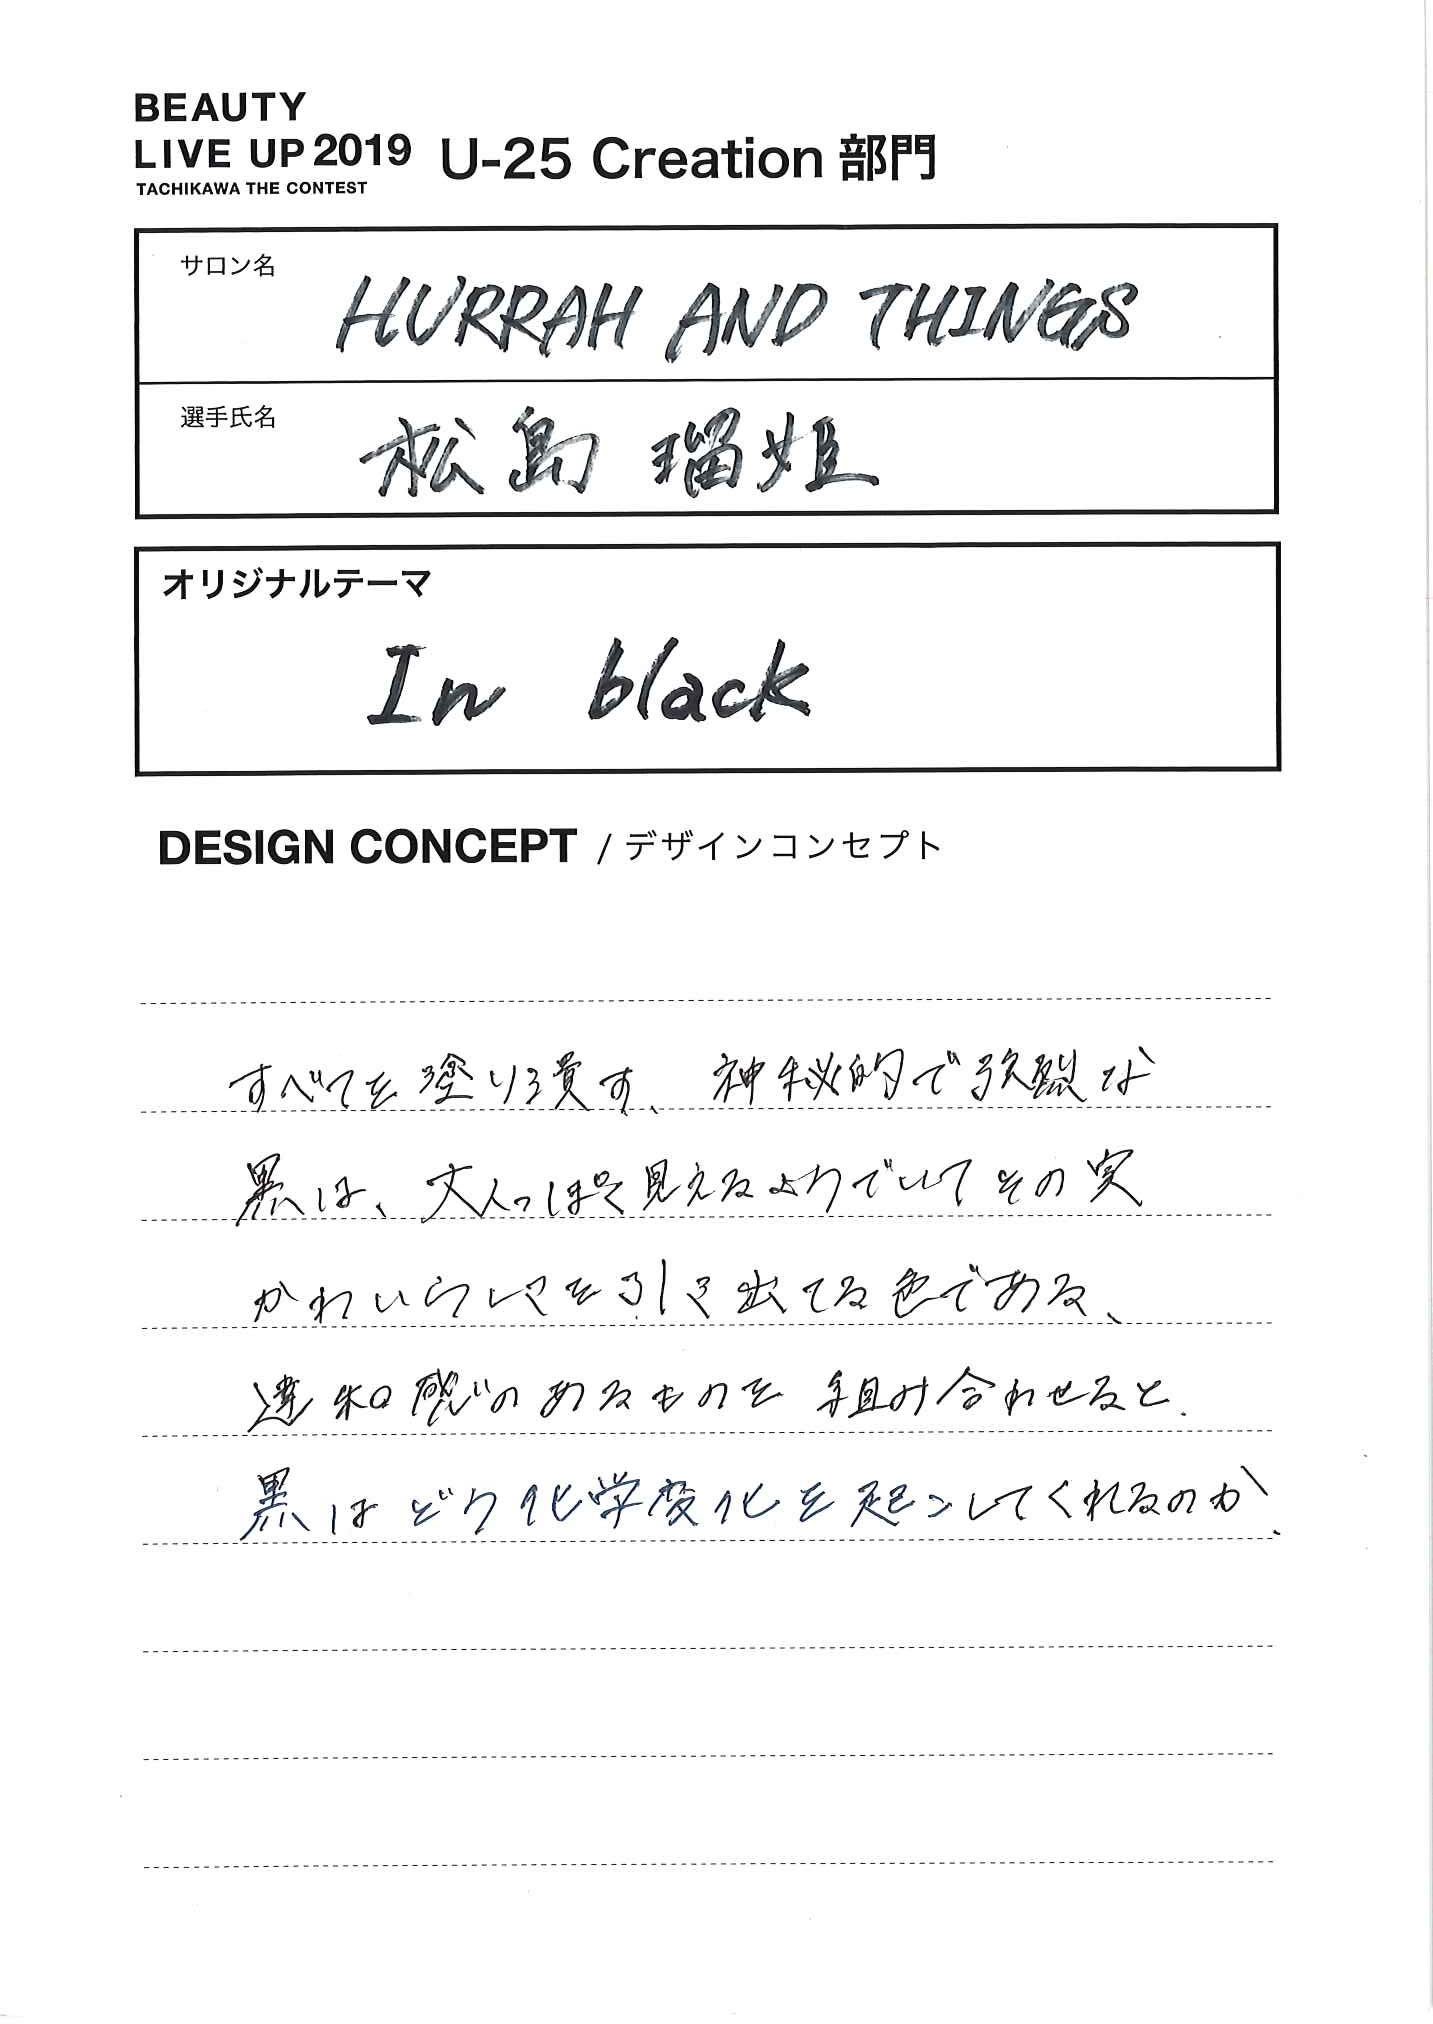 BEAUTY
LIVE UP 2019 U-25 Creation 部門
TACHIKAWA THE CONTEST
サロン名
HURRAH AND THINGS
選手氏名
松島 瑠姫
オリジナルテーマ
In black
DESIGN CONCEPT / デザインコンセプト
すべてを塗り潰す、神秘的で強烈な
黒は、大人っぽく見えるようでいてその実
かわいらしさを引き出てる色である、
違和感のあるものを組み合わせると、
黒はどう化学変化を起こしてくれるのか、